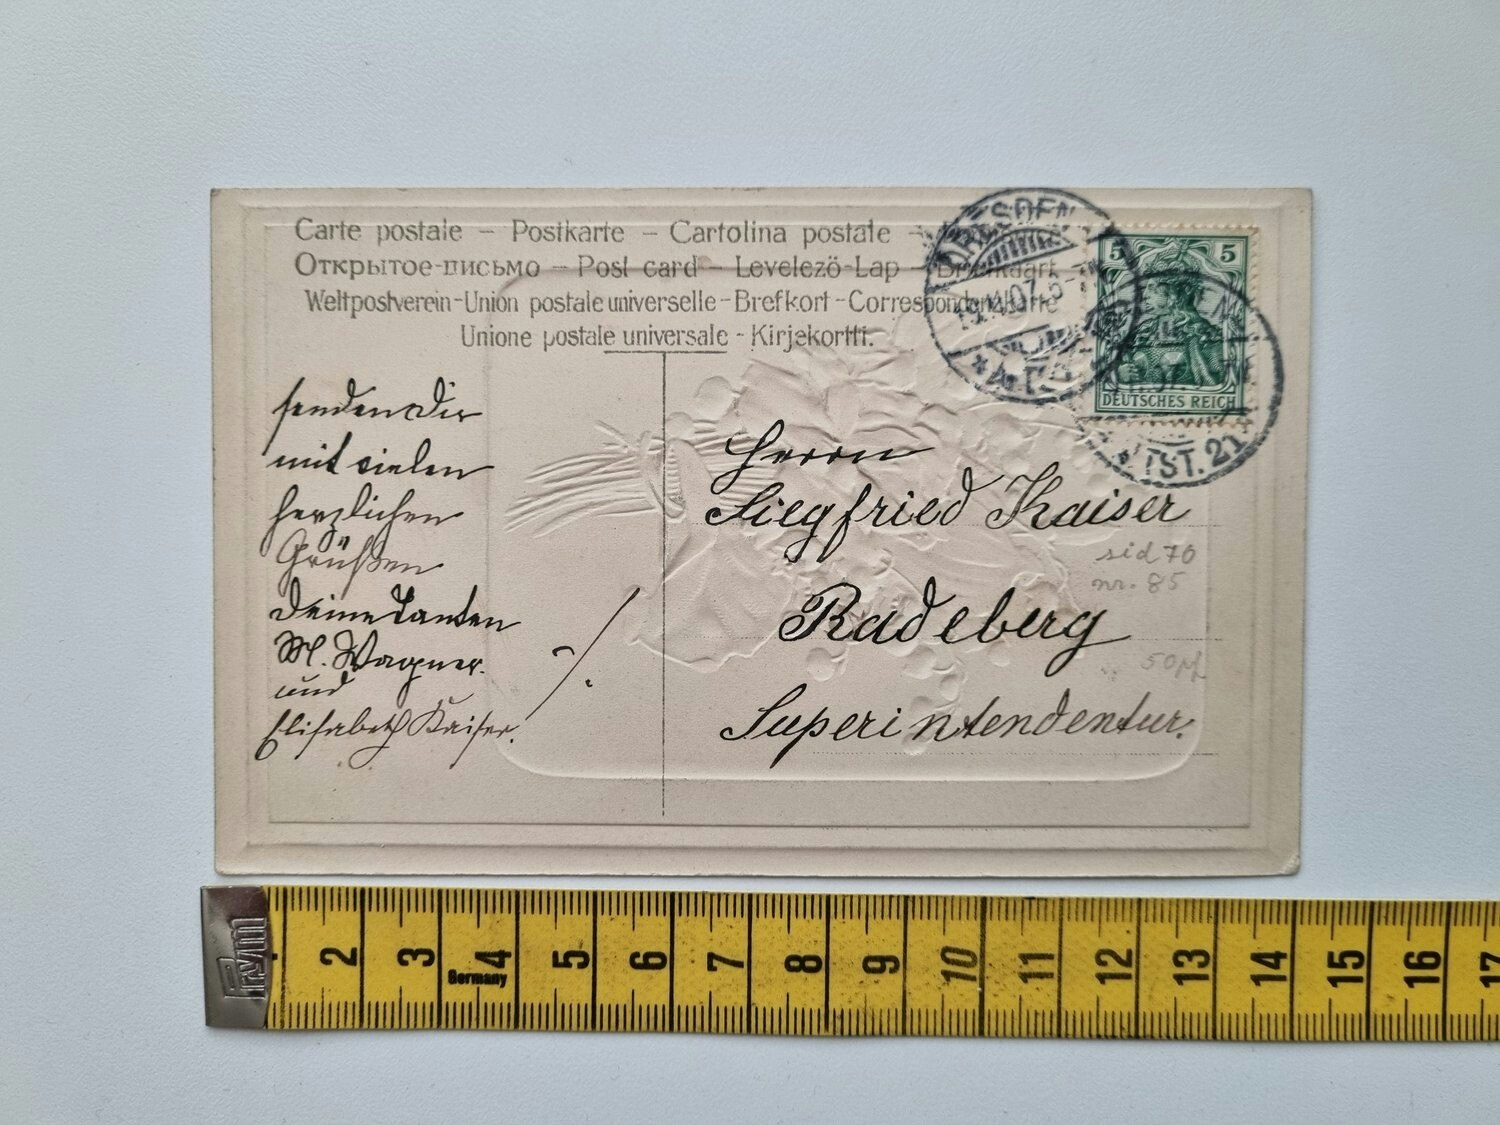 Carte postale – Postkarte – Cartolina postale –
Открытое-письмо – Post card – Levelezö-Lap – Briefkaart –
Weltpostverein-Union postale universelle-Brefkort-Correspondenzkarte
Unione postale universale - Kirjekortti.
DRESDEN
07.5-
5 5
DEUTSCHES REICH
ST. 21
senden Dir
mit vielen
herzlichen
Grüßen
Deine Tanten
M. Wagner.
und
Elisabeth Kaiser.
Herrn
Siegfried Kaiser
Radeberg
Superintendentur.
sid 70
nr. 85
50
Prym
2 3 4 5 6 7 8 9 10 11 12 13 14 15 16 17
Germany